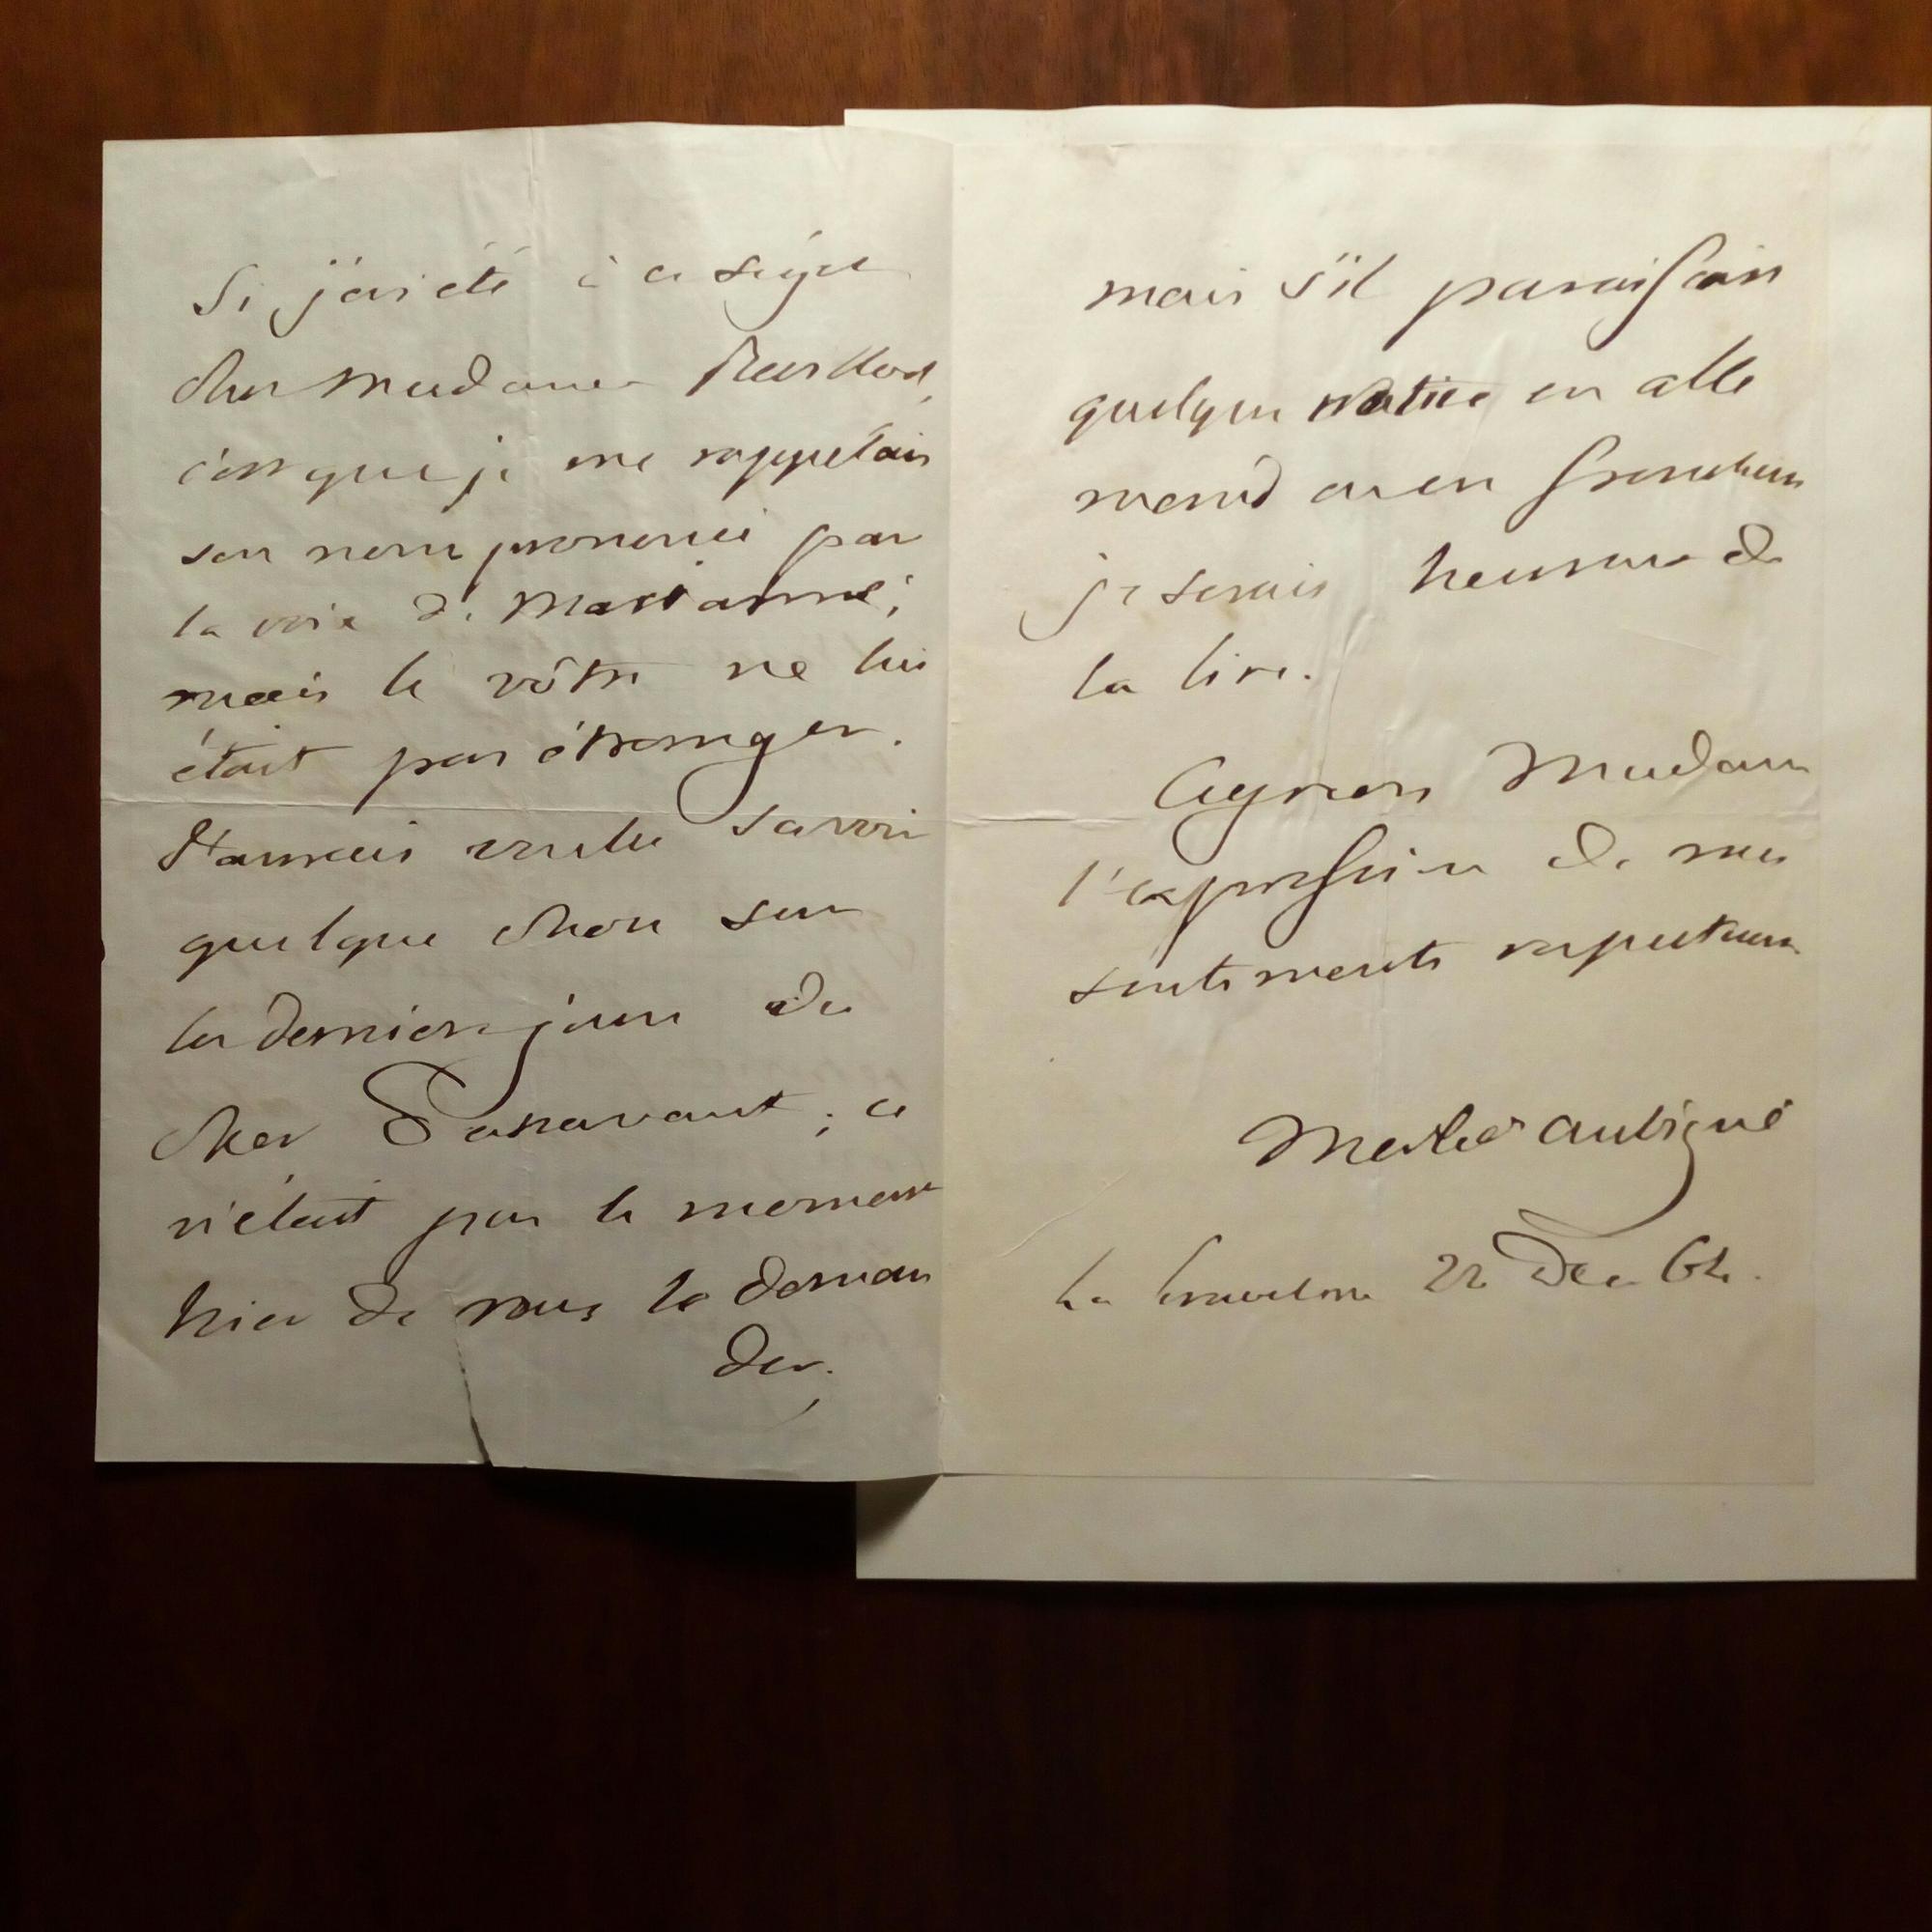 Si j'ai été à ce sujet
chez Madame
c'est que je me rappelais
son nom prononcé par
la voix de Marianne;
mais le vôtre ne lui
était pas étranger.
J'aurais voulu savoir
quelque chose sur
les derniers jours du
cher ; ce
n'était pas le moment
hier de vous le deman
der;
mais s'il paraissait
quelque notice en alle
mand ou en français
je serais heureux de
la lire.
Agréez Madame
l'expression de mes
sentiments respectueux
Merle d'Aubigné
La Graveline 22 Dec 64.